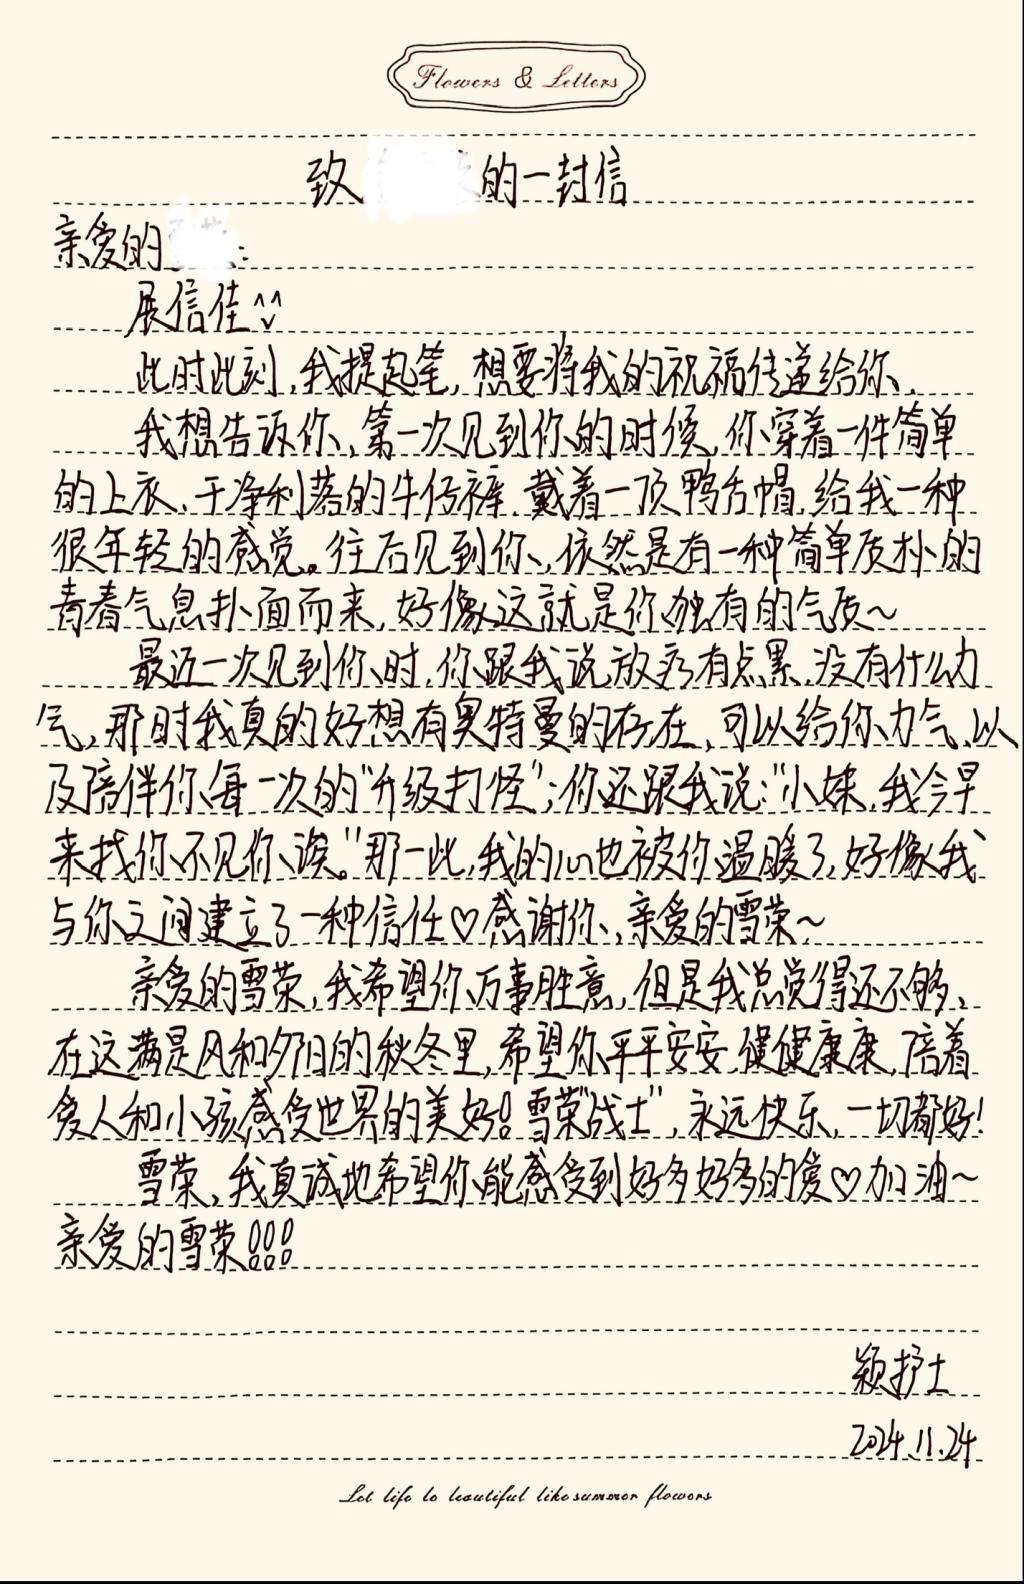 Flowers & Letters
致 的一封信
亲爱的 :
展信佳^^
此时此刻,我提起笔,想要将我的祝福传递给你.
我想告诉你,第一次见到你的时候,你穿着一件简单
的上衣、干净利落的牛仔裤.戴着一顶鸭舌帽,给我一种
很年轻的感觉。往后见到你、依然是有一种简单质朴的
青春气息扑面而来,好像这就是你独有的气质~
最近一次见到你时,你跟我说放疗有点累,没有什么力
气,那时我真的好想有奥特曼的存在,可以给你力气、以
及陪伴你每一次的"升级打怪";你还跟我说:"小妹,我今早
来找你不见你诶。"那一此,我的心也被你温暖了,好像我
与你之间建立了一种信任♡感谢你、亲爱的雪荣~
亲爱的雪荣,我希望你万事胜意,但是我总觉得还不够、
在这满是风和夕阳的秋冬里,希望你平平安安,健健康康,陪着
爱人和小孩感受世界的美好!雪荣"战士",永远快乐,一切都好!
雪荣,我真诚地希望你能感受到好多好多的爱♡加油~
亲爱的雪荣!!!
颖护士
2024.11.24
Let life be beautiful like summer flowers